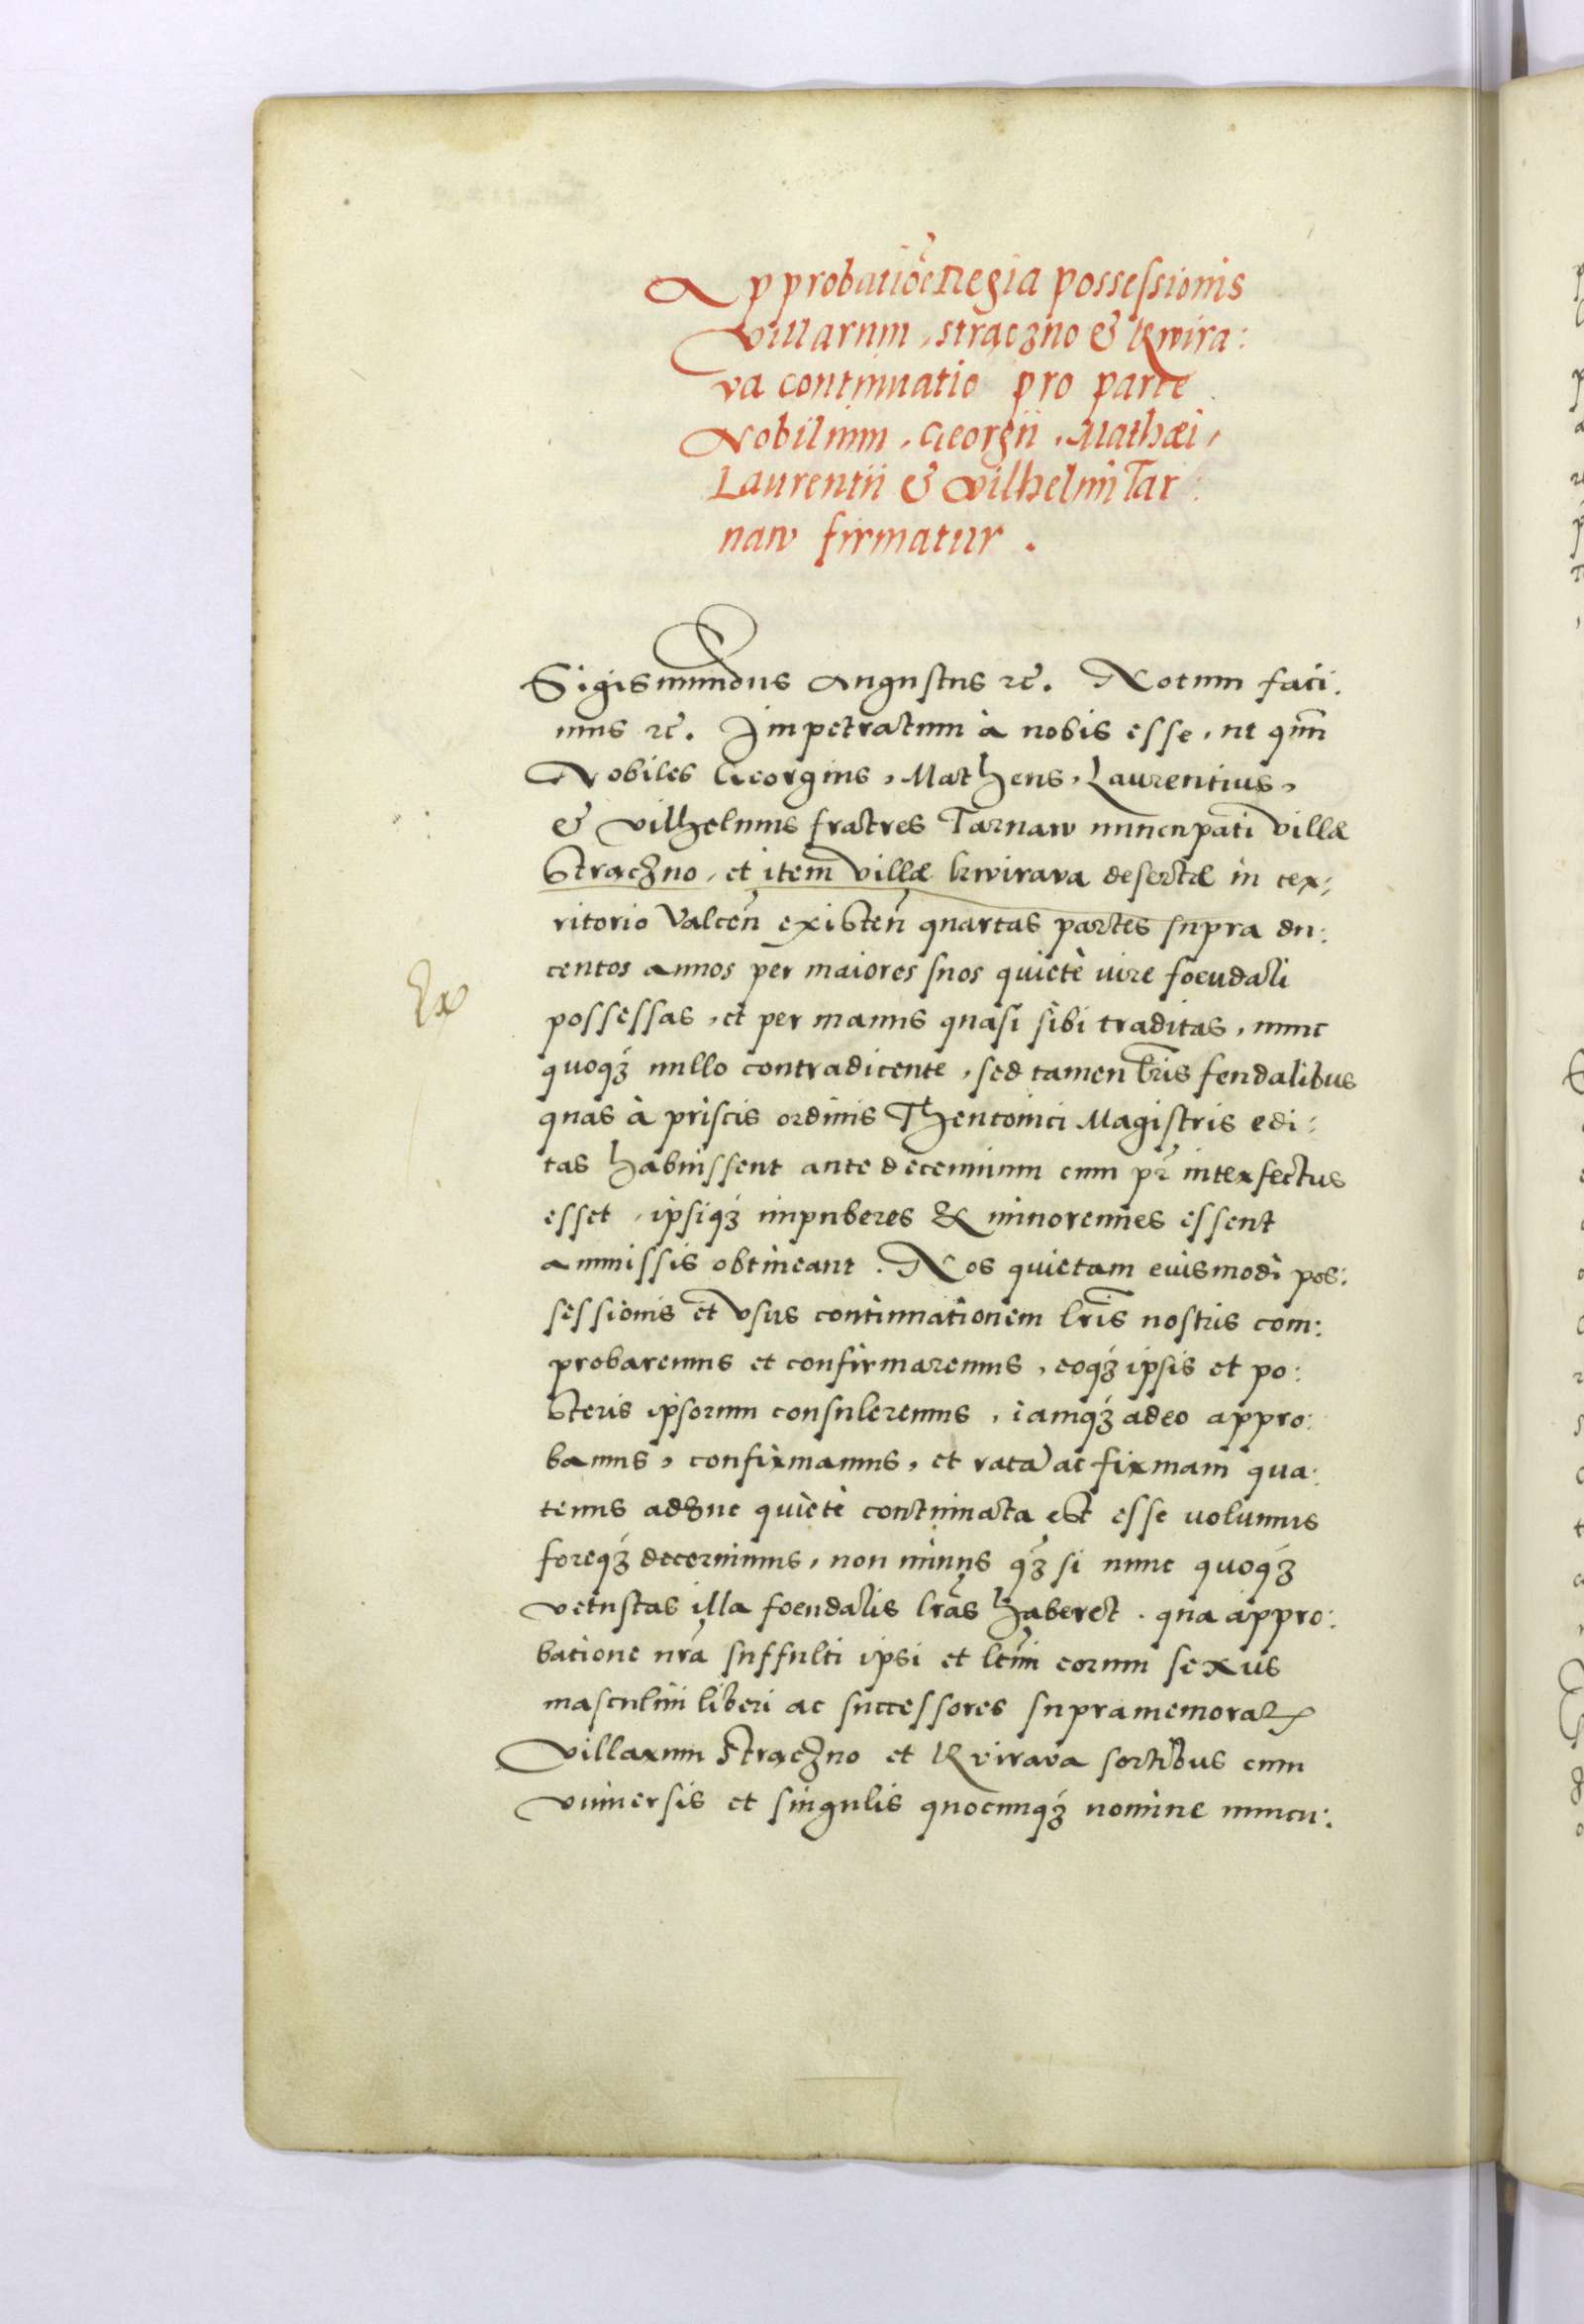 Approbatiōe Regia possessionis
Villarum, straczno & Kwira:
va continuatio pro parte
Nobilium, Georgii, Mathæi,
Laurentii & Vilhelmi Tar:
naw firmatur.
Sigismundus Augustus ꝛc̄. Notum faci:
mus ꝛc̄. Impetratum à nobis esse, ut qum̄
Nobiles Georgius, Matheus, Laurentius,
& Vilhelmus fratres Tarnaw nuncupati Villæ
Straczno, et item Villæ Kwirava desertæ in ter:
ritorio Valceñ existeñ quartas partes supra du:
centos annos per maiores suos quietè iure foeudali
Ex
possessas, et per manus quasi sibi traditas, nunc
quoqꝫ nullo contradicente, sed tamen lr̄is feudalibus
quas à priscis ordinis Theutonici Magistris edi:
tas habuissent ante decennium cum pr̄ interfectus
esset, ipsiqꝫ impuberes & minorennes essent
ammissis obtineant. Nos quietam eiusmodi pos:
sessionis et vsus continuationem lr̄is nostris com:
probaremus et confirmaremus, eoqꝫ ipsis et po:
steris ipsorum consuleremus, iamqꝫ adeo appro:
bamus, confirmamus, et ratā ac firmam qua:
tenus adhuc quietè continuata est esse uolumus
foreqꝫ decernimus, non minus qꝫ si nunc quoqꝫ
vetustas illa foeudalis lr̄as haberet. qua appro:
batione nr̄a suffulti ipsi et ltīmi eorum sexus
masculini liberi ac successores supramemoratꝝ
Villarum Straczno et Kvirava sortibus cum
vniuersis et singulis quocunqꝫ nomine nuncu: